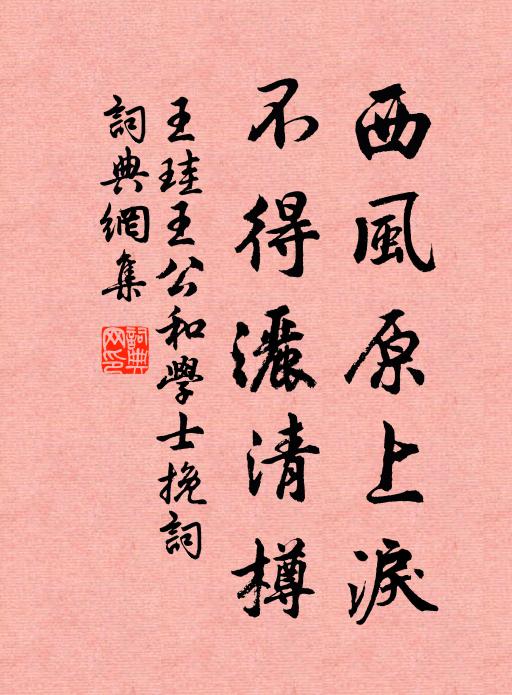 西風原上淚
不得灑清樽
王珪王公和學士挽詞
詞典網集
詞典網印